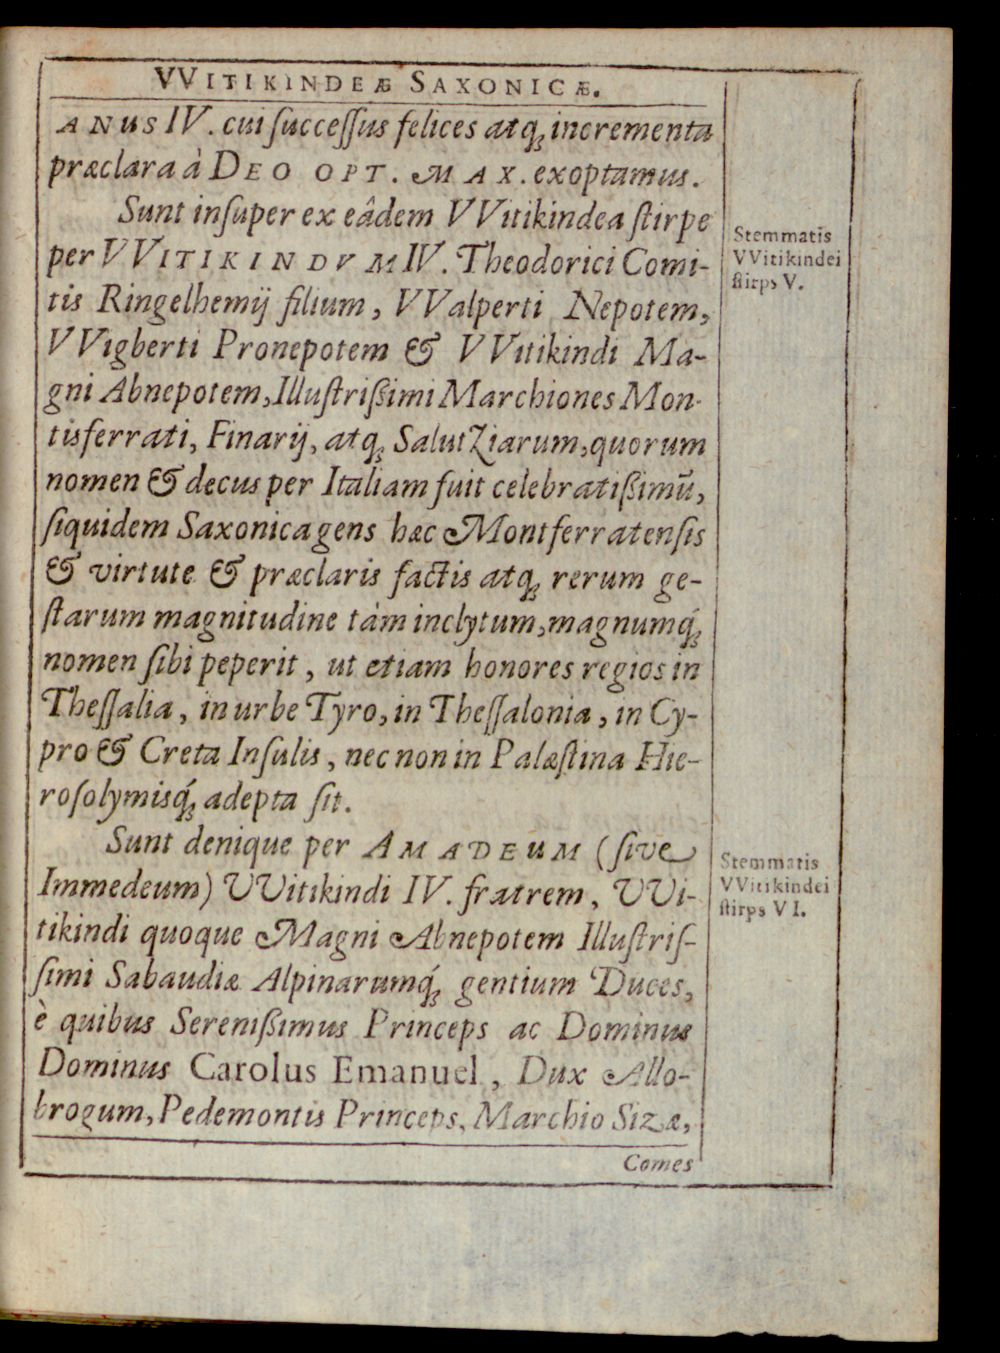 VVITIKINDEÆ SAXONICÆ.
ANUS IV. cui ſucceſſus felices atq; incrementa
præclara à DEO OPT. MAX. exoptamus.
Sunt inſuper ex eâdem VVitikindea ſtirpe
per VVITIKINDVM IV. Theodorici Comi-
tis Ringelhemij filium, VValperti Nepotem,
VVigberti Pronepotem & VVitikindi Ma-
gni Abnepotem, Illuſtrißimi Marchiones Mon-
tisferrati, Finarij, atq; Salutziarum, quorum
nomen & decus per Italiam fuit celebratißimū,
ſiquidem Saxonica gens hæc Montferratenſis
& virtute & præclaris factis atq; rerum ge-
ſtarum magnitudine tàm inclytum, magnumq́;
nomen ſibi peperit, ut etiam honores regios in
Theſſalia, in urbe Tyro, in Theſſalonia, in Cy-
pro & Creta Inſulis, nec non in Palæſtina Hie-
roſolymisq́; adepta ſit.
Sunt denique per AMADEUM (ſive
Immedeum) VVitikindi IV. fratrem, VVi-
tikindi quoque Magni Abnepotem Illuſtriſ-
ſimi Sabaudiæ Alpinarumq́; gentium Duces,
è quibus Serenißimus Princeps ac Dominus
Dominus Carolus Emanuel, Dux Allo-
brogum, Pedemontis Princeps, Marchio Sizæ,
Comes
Stemmatis
VVitikindei
ſtirps V.
Stemmatis
VVitikindei
ſtirps VI.